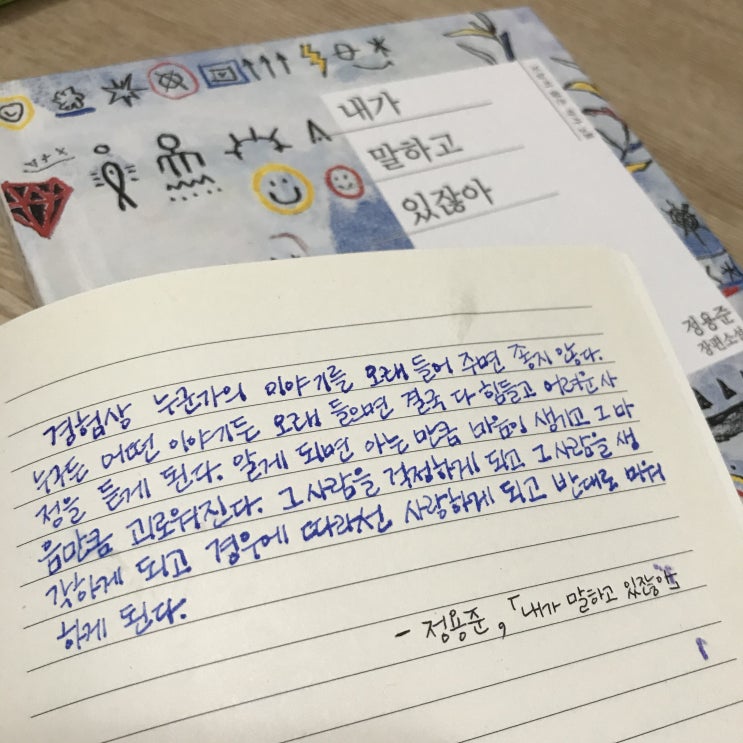 내가
말하고
있잖아
정용준
장편소설
경험상 누군가의 이야기를 오래 들어 주면 좋지 않다.
누구든 어떤 이야기든 오래 들으면 결국 다 힘들고 어려운 사
정을 듣게 된다. 알게 되면 아는 만큼 마음이 생기고 그 마
음만큼 괴로워진다. 그 사람을 걱정하게 되고 그 사람을 생
각하게 되고 경우에 따라선 사랑하게 되고 반대로 미워
하게 된다.
- 정용준, 「내가 말하고 있잖아」